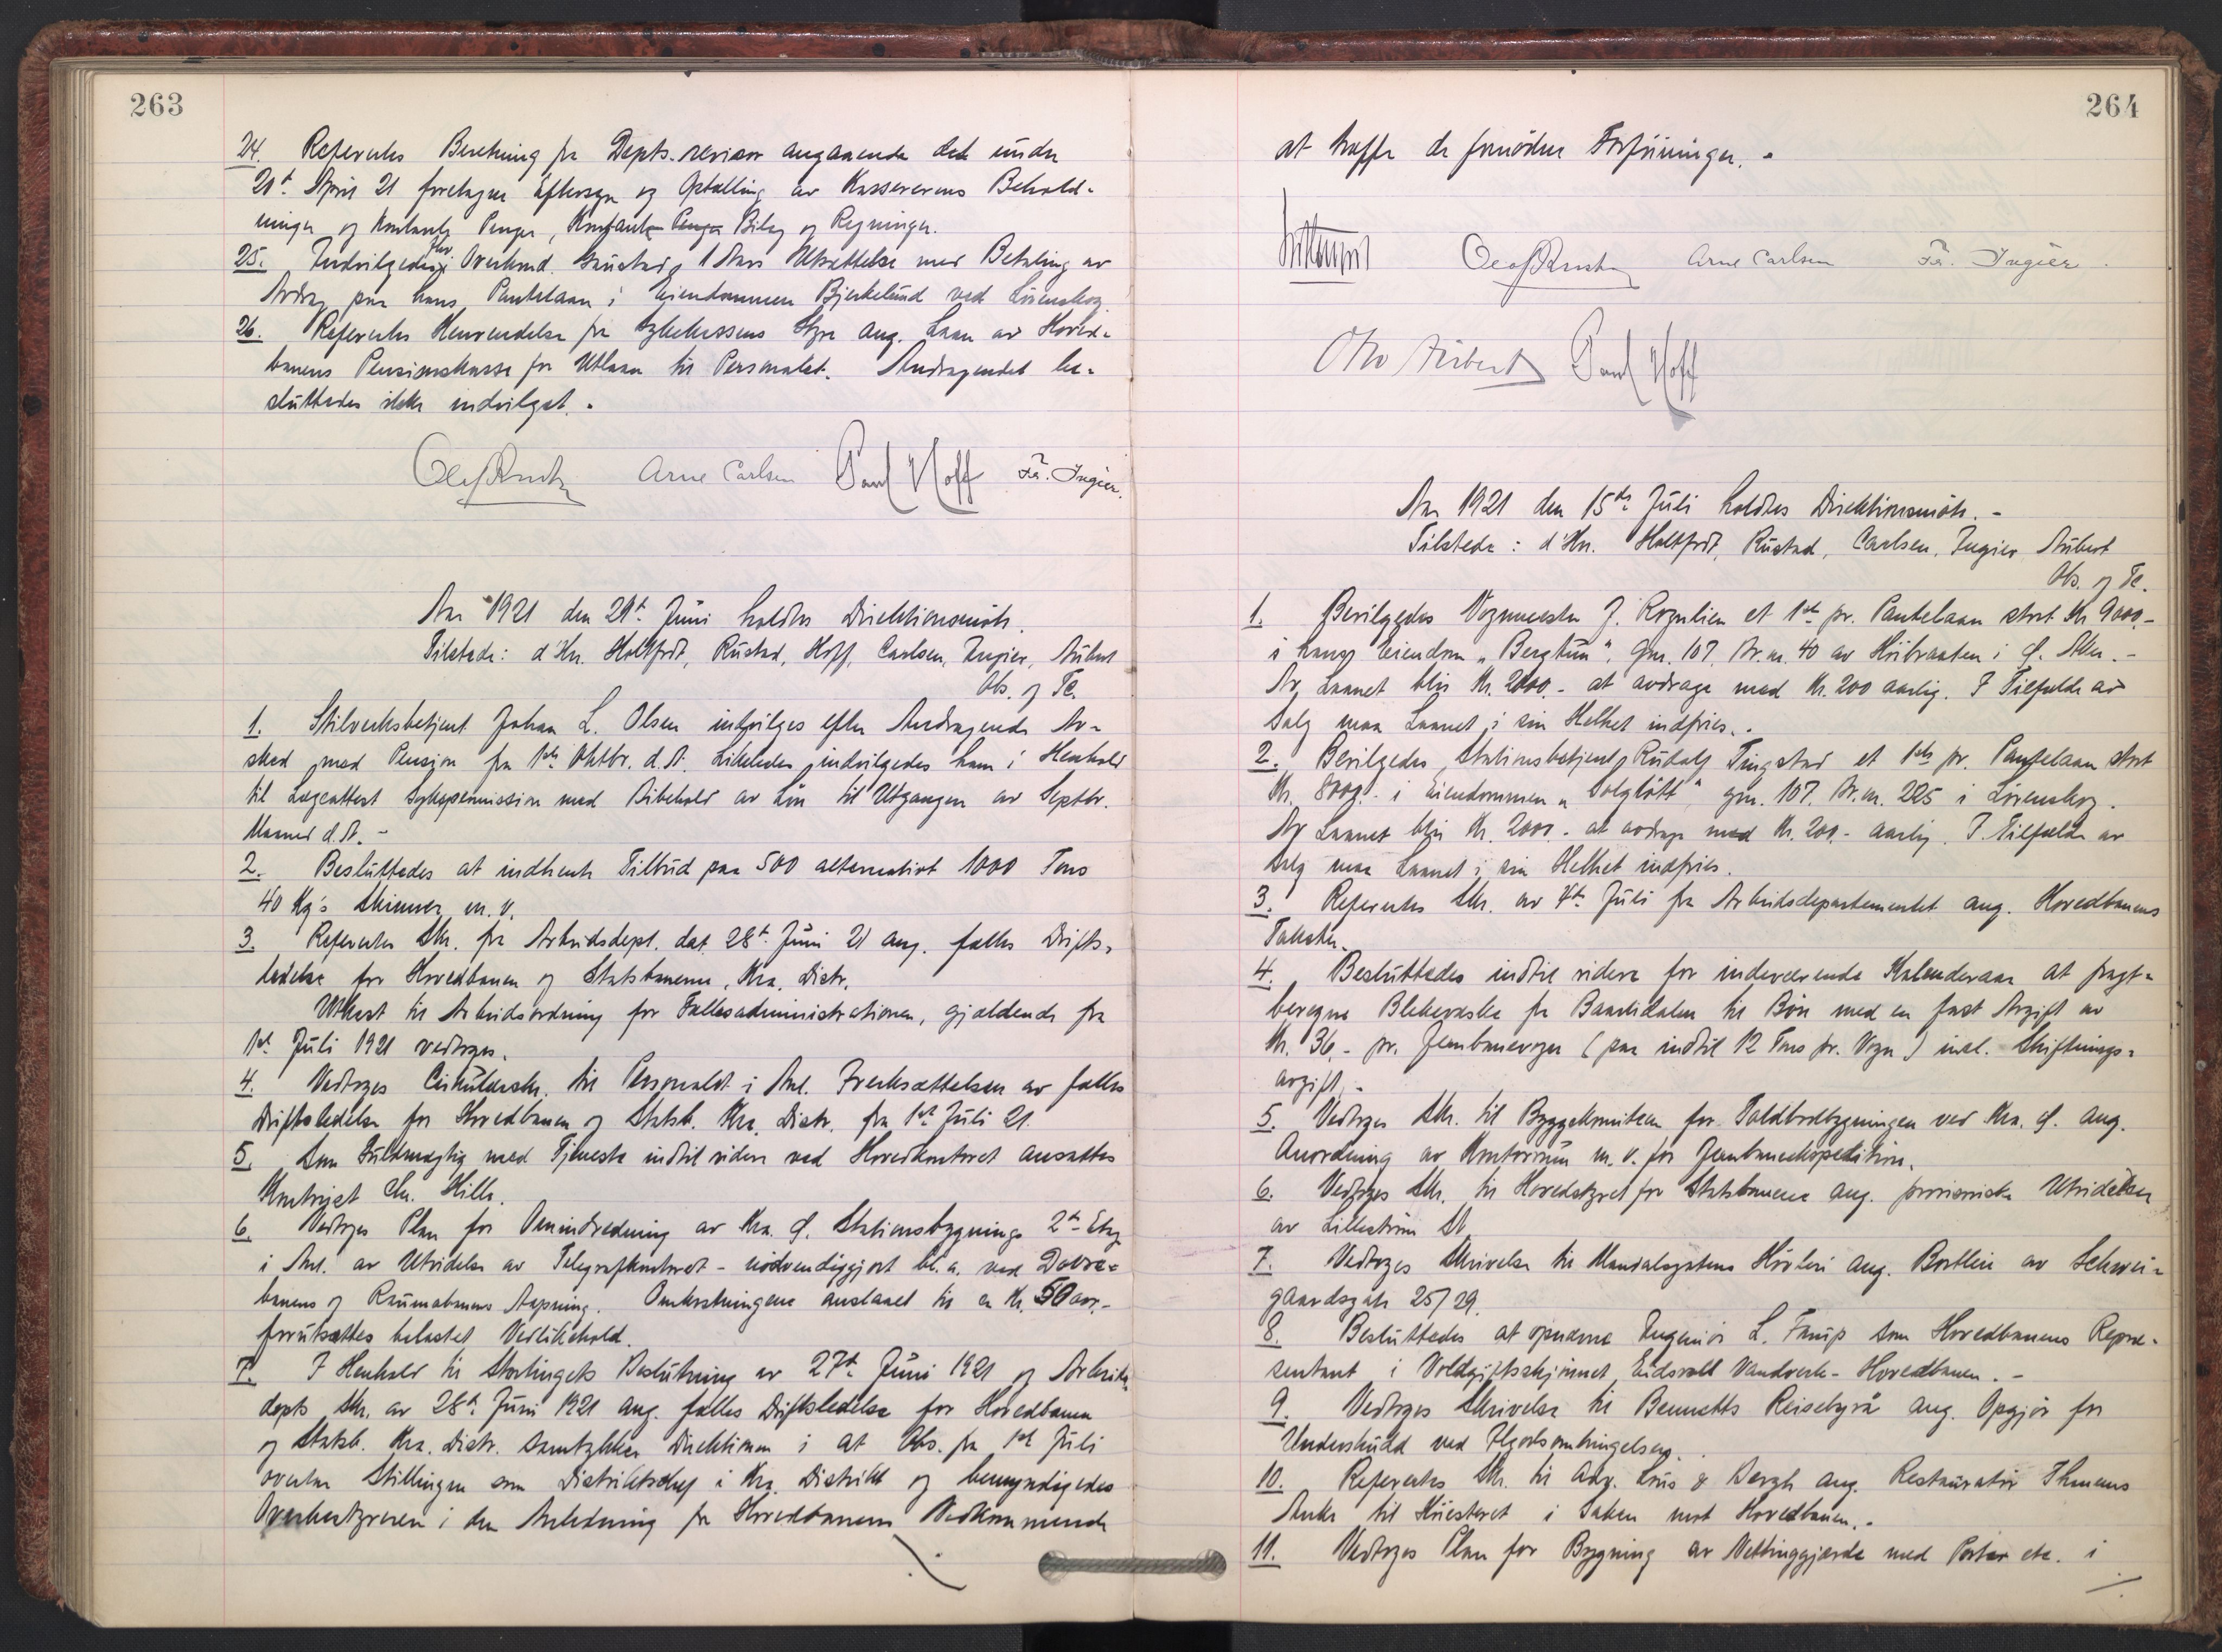 263
24. Refereertes Beretning fra Depts. revisor angaaende det under
21de April 21 foretagne Eftersyn og Optælling av Kassererens Behold-
ninger og Kontante Penge, Kontante Penge Bilag og Regninger.
25. Indvilgedes fhv Overkond. Grustad 1 Aars Utsættelse med Betaling av
Avdrag paa hans Pantelaan i Eiendommen Bjerkelund ved Lörenskog.
26. Refereertes Henvendelse fra Sykekassens Styre ang. Laan av Hoved-
banens Pensionskasse for Utlaan til Personalet. Andragendet be-
sluttedes ikke indvilget. -
Olaf Rustad Arne Carlsen Paul Hoff Fr. Ingier.
Aar 1921 den 29de Juni holdtes Direktionsmöte.
Tilstede: d'Hrr. Holtfodt, Rustad, Hoff, Carlsen, Ingier, Aubert
Obs. og Tc.
1. Stilverksbetjent Johan L. Olsen indvilges efter Andragende Av-
sked med Pension fra 1ste Oktbr. d.A. Likeledes indvilgedes ham i Henhold
til Lægeattest Sykepermission med Bibehold av Lön til Utgangen av Septbr.
Maaned d.A. -
2. Besluttedes at indhente Tilbud paa 500 alternativt 1000 Tons
40 Kg's Skinner m.v.
3. Refereertes Skr. fra Arbeidsdept. dat. 28de Juni 21 ang. fælles Drifts-
ledelse for Hovedbanen og Statsbanerne, Kra. Distr.
Utkast til Arbeidsordning for Fællesadministrationen, gjældende fra
1ste Juli 1921 vedtoges.
4. Vedtoges Cirkulærskr. til Personalet i Anl. Iverksættelsen av fælles
Driftsledelse for Hovedbanen og Statsb. Kra. Distr. fra 1ste Juli 21.
5. Som Fuldmægtig med Tjeneste indtil videre ved Hovedkontoret ansattes
Kontorist Chr. Hille.
6. Vedtoges Plan for Omindredning av Kra. Ø. Stationsbygnings 2den Etag
i Anl. av Utvidelse av Telegrafkontoret - nödvendiggjort bl.a. ved Dovre-
banens og Raumabanens Aapning. Omkostningene anslaaet til ca Kr. 50 000.-
forutsættes belastet Vedlikehold.
7. I Henhold til Stortingets Beslutning av 27de Juni 1921 og Arbeids-
depts Skr. av 28de Juni 1921 ang. fælles Driftsledelse for Hovedbanen
og Statsb. Kra. Distr. samtykker Direktionen i at Obs. fra 1ste Juli
overtar Stillingen som Distriktschef i Kra. Distrikt og bemyndigedes
Overbestyreren i den Anledning for Hovedbanens Vedkommende
264
at træffe de fornödne Forföininger. -
Holtfodt Olaf Rustad Arne Carlsen Fr. Ingier.
Otto Aubert Paul Hoff
Aar 1921 den 15de Juli holdtes Direktionsmöte. -
Tilstede: d'Hrr. Holtfodt, Rustad, Carlsen, Ingier, Aubert
Obs. og Tc.
1. Bevilgedes Vognmester J. Rognlien et 1ste pr. Pantelaan stort Kr 9000.-
i hans Eiendom "Bergtun", gnr. 107, Br.nr. 40 av Höibraaten i Ø. Aker. -
Av Laanet blir Kr. 2000.- at avdrage med Kr. 200 aarlig. I Tilfælde av
Salg maa Laanet i sin Helhet indfries. -
2. Bevilgedes Stationsbetjent Rudolf Tingstad et 1ste pr. Pantelaan stort
Kr. 8000.- i Eiendommen "Solglött" gnr. 107. Br.nr. 225 i Lörenskog.
Av Laanet blir Kr. 2000.- at avdrage med Kr. 200.- aarlig. I Tilfælde av
Salg maa Laanet i sin Helhet indfries.
3. Refereertes Skr. av 4de Juli fra Arbeidsdepartementet ang. Hovedbanens
Takster.
4. Besluttedes indtil videre for indeværende Kalenderaar at fragt-
beregne Blekevæske fra Baardidalen til Bön med en fast Avgift av
Kr. 36.- pr. Jernbanevogn (paa indtil 12 Tons pr. Vogn) inkl. Skiftnings-
avgift. -
5. Vedtoges Skr. til Byggekomiteen for Toldbodbygningen ved Kra. Ø. ang.
Anordning av Kontorrum m.v. for Jernbaneekspedition.
6. Vedtoges Skr. til Hovedstyret for Statsbanene ang. provisoriske Utvidelser
av Lilleström St.
7. Vedtoges Skrivelse til Mandalsgatens Hövleri ang. Bortleie av Schwei-
gaardsgate 25/29.
8. Besluttedes at opnævne Ingeniör L. Faup som Hovedbanens Repræ-
sentant i Voldgiftsskjönnet Eidsvold Vandverk - Hovedbanen. -
9. Vedtoges Skrivelse til Bennetts Reisebyrå ang. Opgjör for
Underskudd ved Ilgodsombringelsen.
10. Refereertes Skr. til Adv. Lous & Bergh ang. Restauratör Thunæs
Anke til Höiesteret i Saken mot Hovedbanen. -
11. Vedtoges Plan for Bygning av Nettinggjærde med Porter etc. i